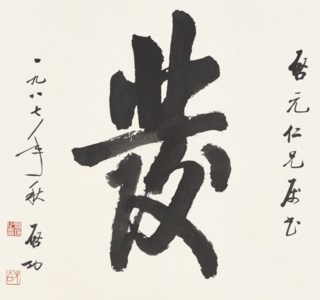 启元仁兄属书
發
一九八七年秋
启功